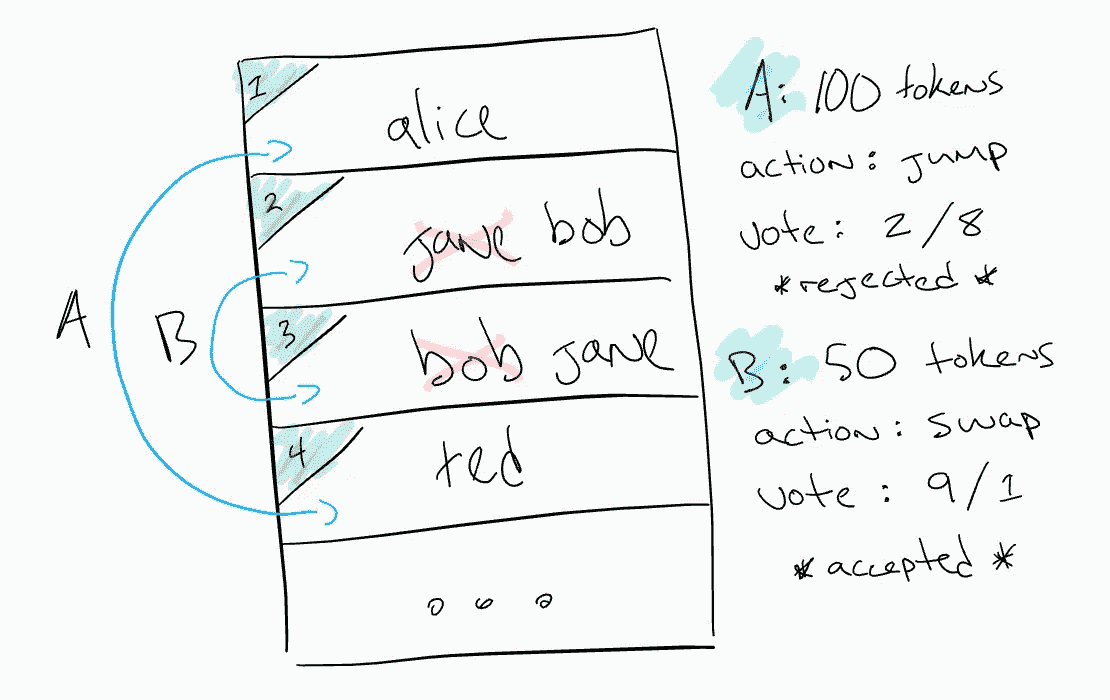 1
alice
2
jane bob
3
bob jane
4
ted
A
B
A: 100 tokens
action: jump
vote: 2/8
*rejected*
B: 50 tokens
action: swap
vote: 9/1
*accepted*